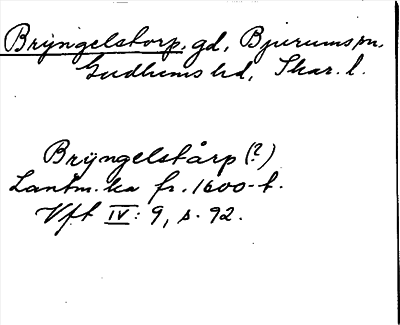 Bryngelstorp, gd, Bjurums sn,
Gudhems hd, Skar. l.
Brÿngelstårp (?)
Lantm. ka fr. 1600-t.
Vft IV: 9, s. 92.